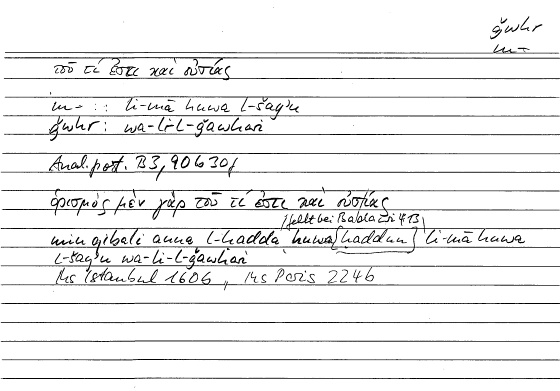 ǧwhr
m-
τοῦ τί ἐστι καὶ οὐσίας
m- :: li-mā huwa l-šayʾu
ǧwhr: wa-li-l-ǧawhari
Anal. post. B3, 90b30f
ὁρισμὸς μὲν γὰρ τοῦ τί ἐστι καὶ οὐσίας
fehlt bei Badawi 413
min qibali anna l-ḥadda huwa [ḥaddun] li-mā huwa
l-šayʾu wa-li-l-ǧawhari
Ms Istanbul 1606, Ms Paris 2246